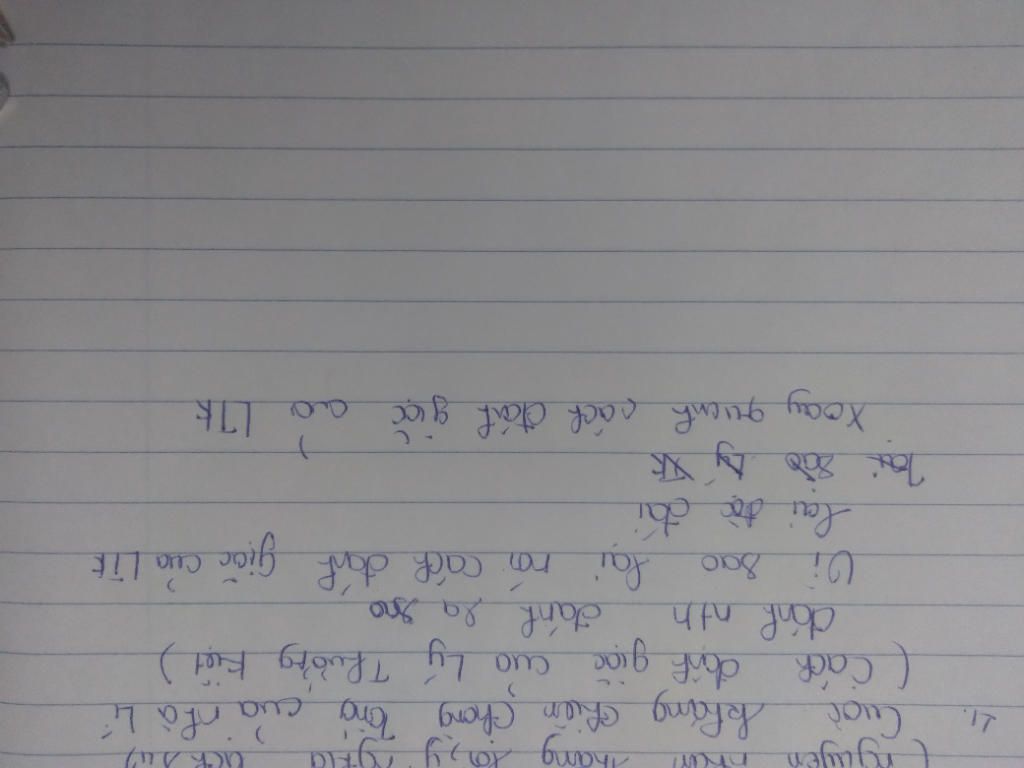 (nguyên nhân thắng lợi, ý nghĩa lịch sử)
4. Cuộc kháng chiến chống Tống của nhà Lí
( Cách đánh giặc của Lý Thường Kiệt )
đánh nth đánh ra sao
Vì sao lại nói cách đánh giặc của LTK
lại độc đáo
Tại sao Lý
Xoay quanh cách đánh giặc của LTK